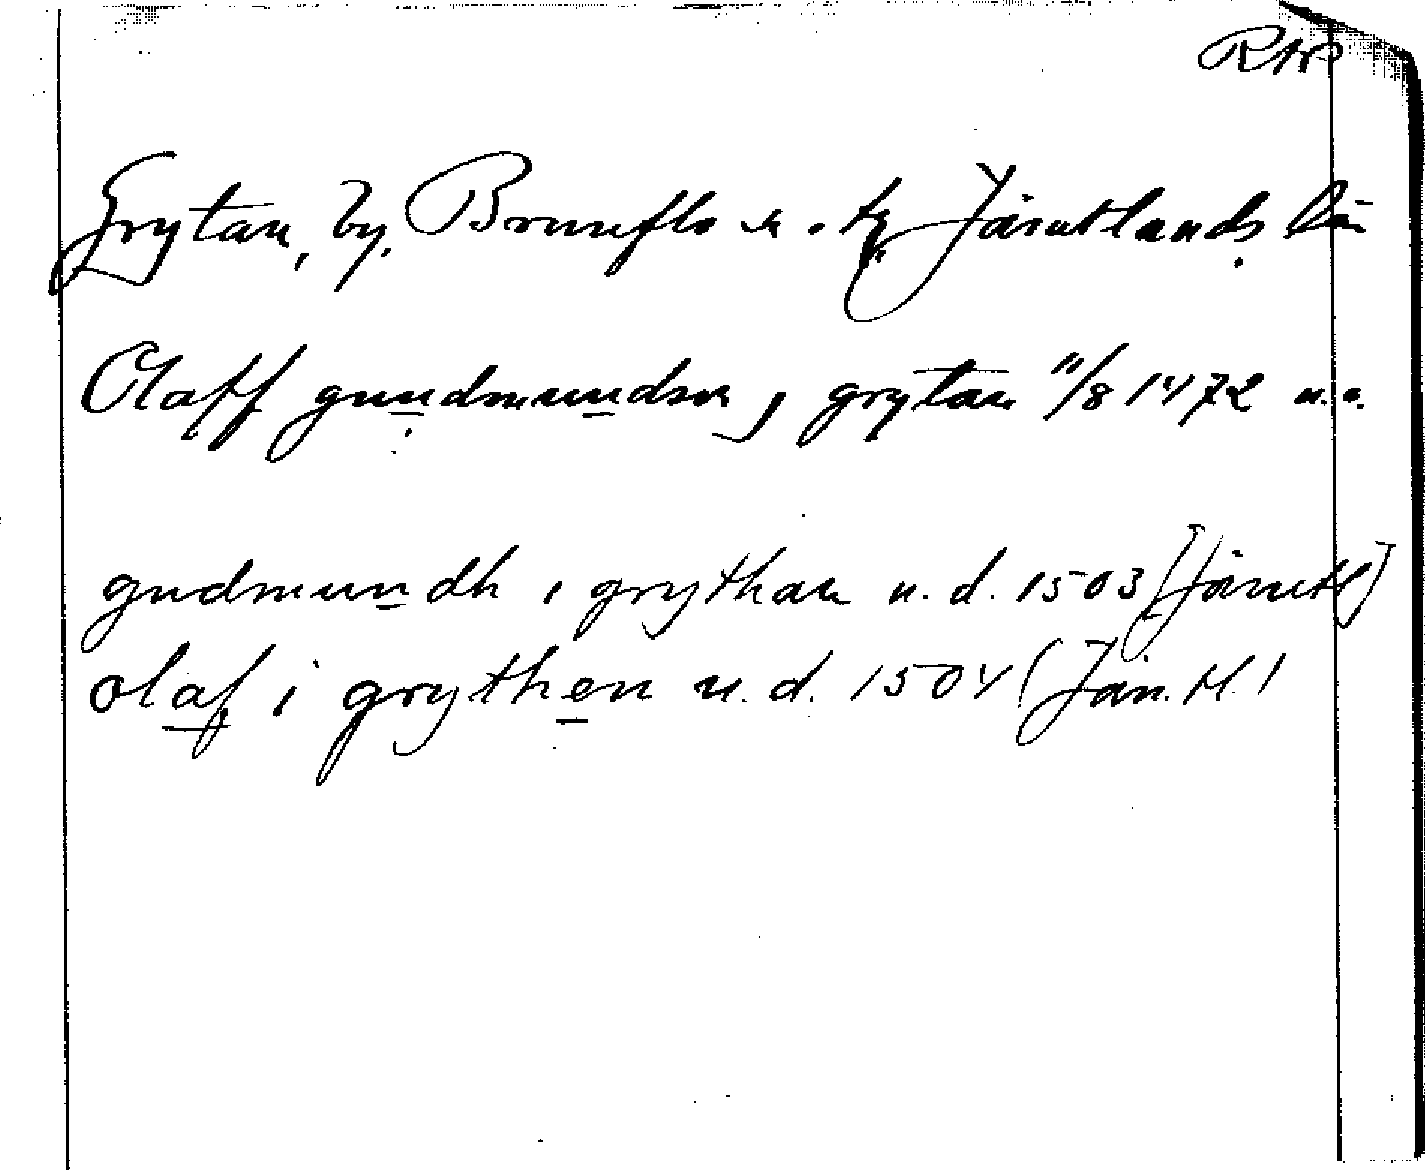 RAP
Grytan, by, Brunflo sn o. tg Jämtlands län
Olaff gundmundsn j grytan 11/8 1472 u.o.
gudmundh i grythan u.d. 1503 [Jämtl]
olaf i grythen u.d. 1504 (Jäm.tl.)